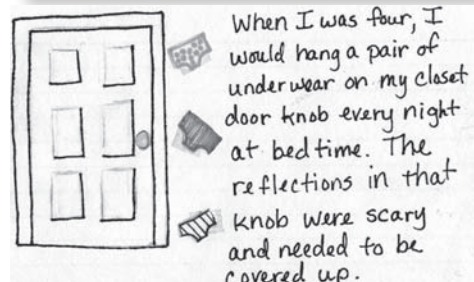 When I was four, I
would hang a pair of
underwear on my closet
door knob every night
at bedtime. The
reflections in that
knob were scary
and needed to be
covered up.